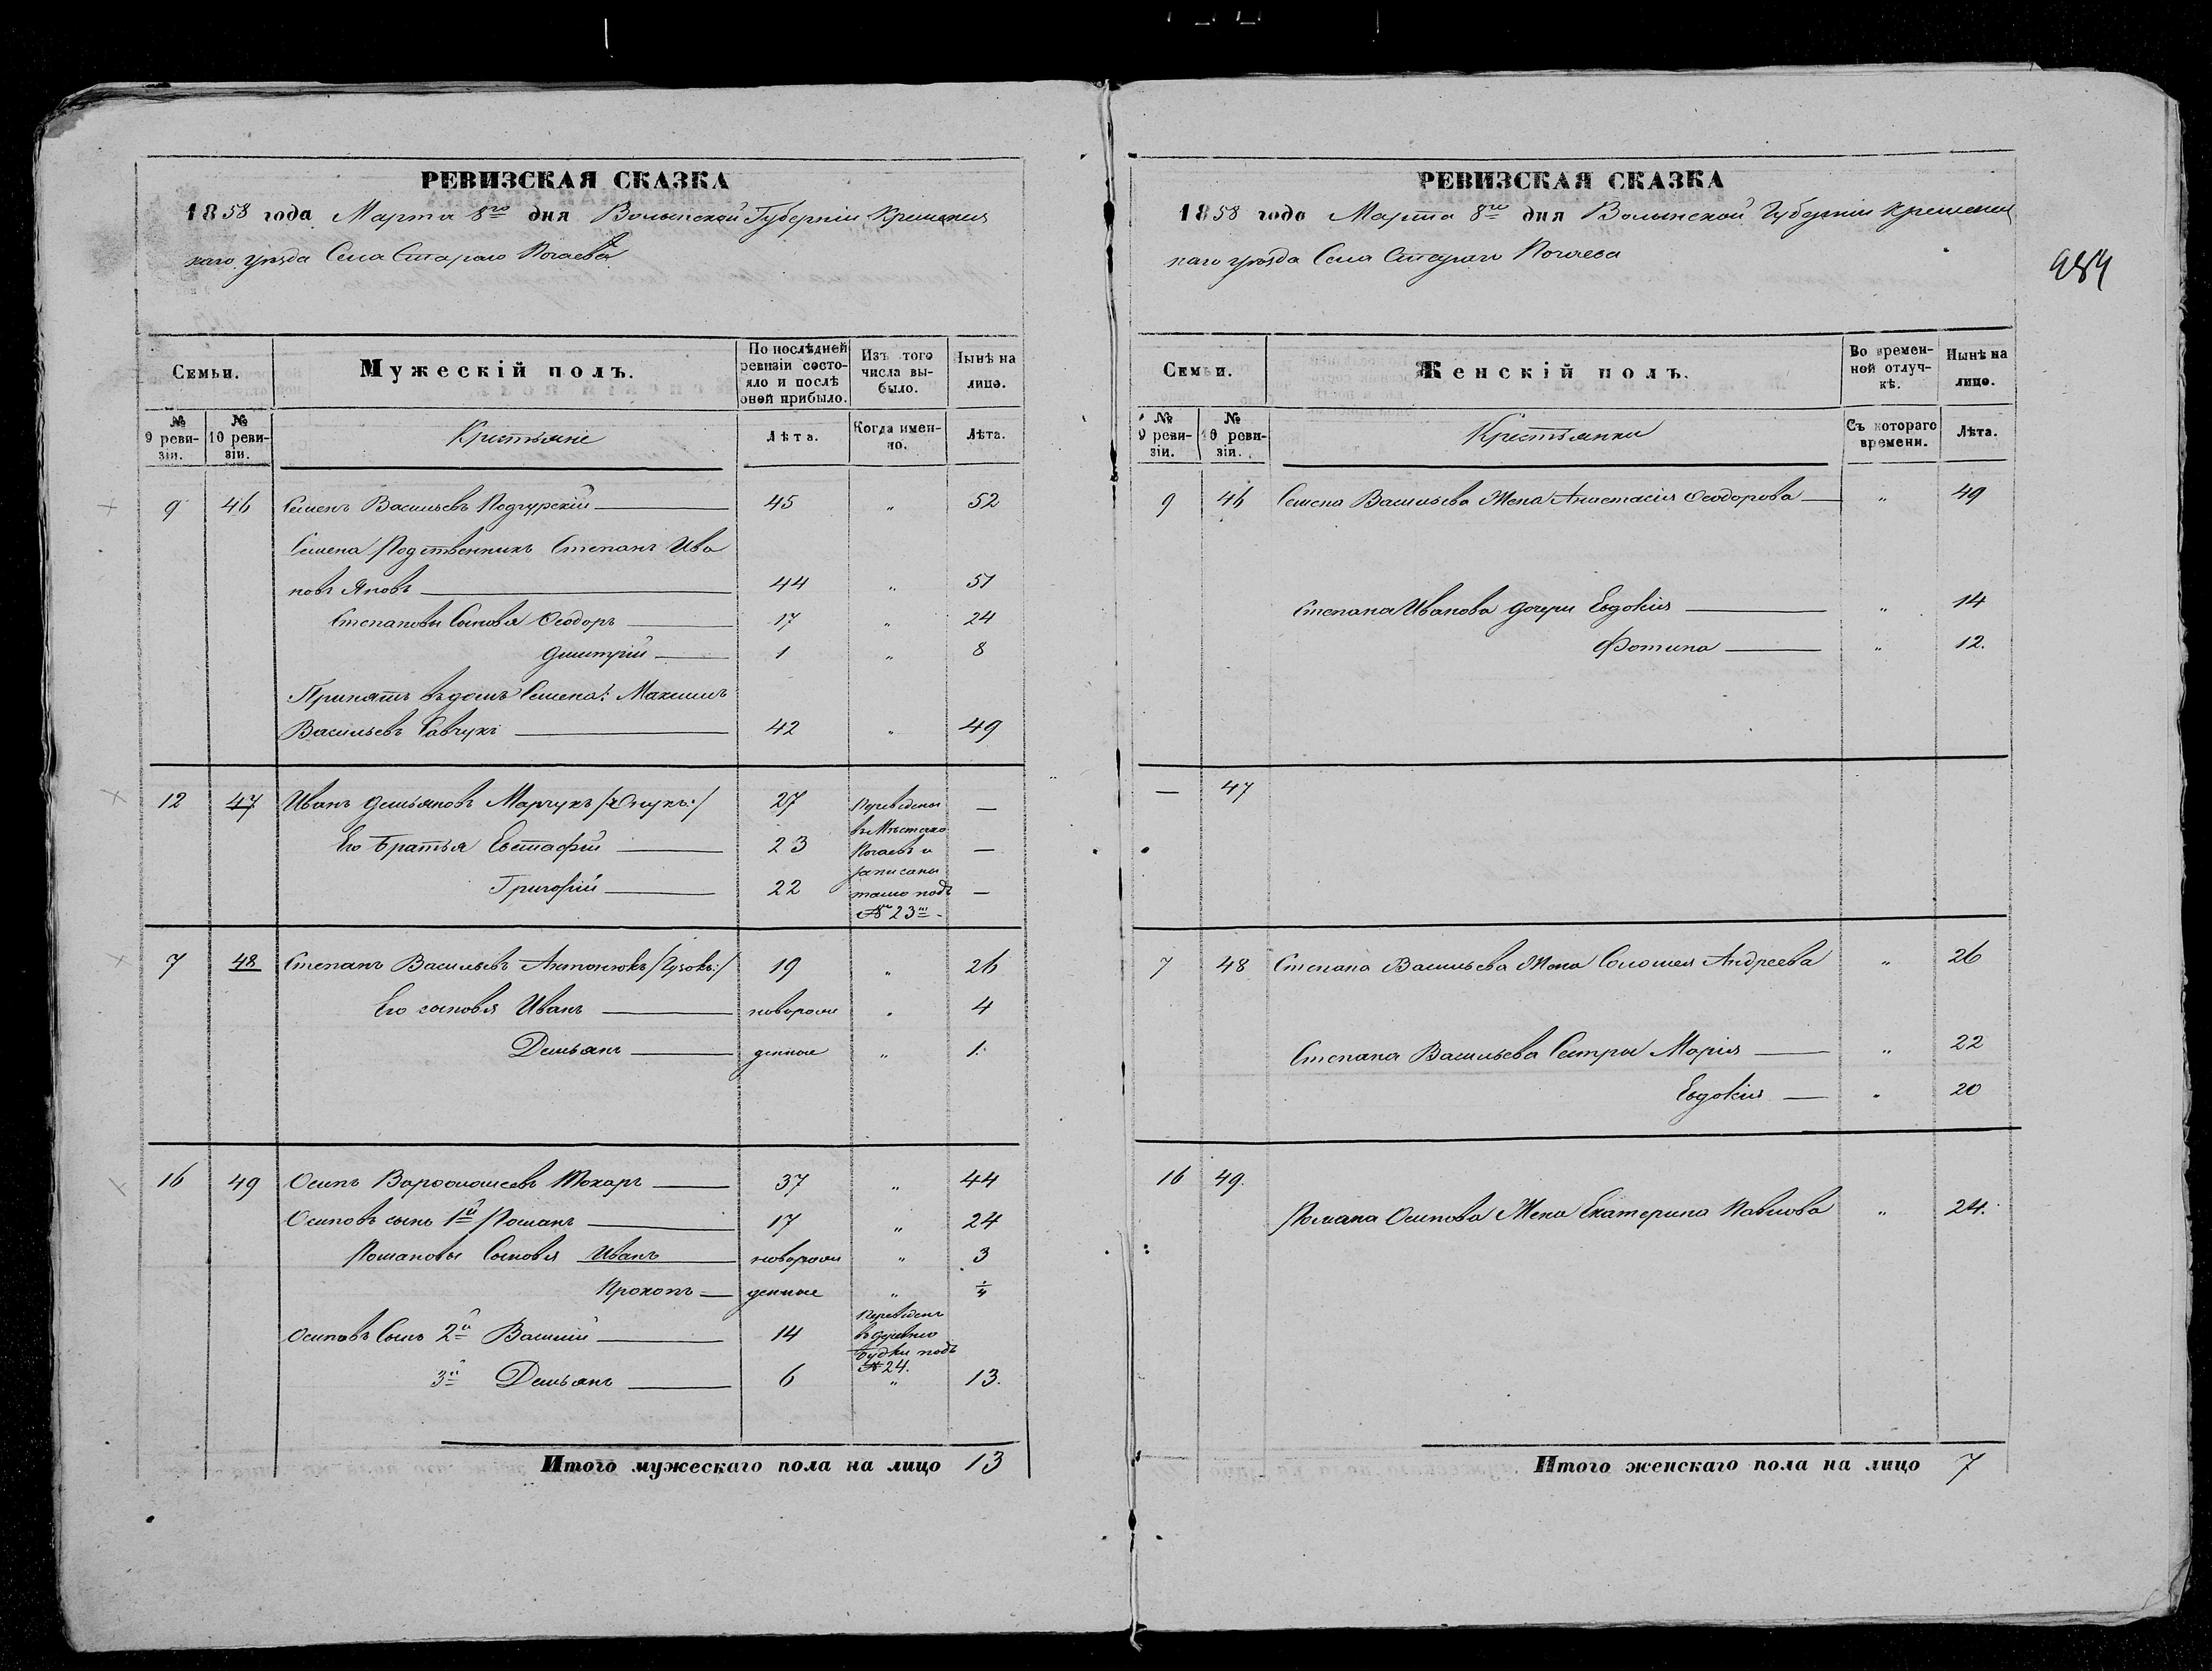 РЕВИЗСКАЯ СКАЗКА
1858 года Марта 8го дня Волынской Губерніи Кременец
каго уѣзда Села Стараго Почаева
Семьи.
Мужескій полъ.
По послѣдней ревизіи состояло и послѣ оной прибыло.
Изъ того числа выбыло.
Нынѣ на лицо.
№ 9 ревизіи.
№ 10 ревизіи.
Крестьяне
Лѣта.
Когда именно.
Лѣта.
9 46 Семенъ Васильевъ Подгурскій 45 " 52
Семена Родственникъ Степанъ Ива
новъ Яновъ 44 " 51
Степановы Сыновья Ѳеодоръ 17 " 24
Дмитрій 1 " 8
Принятъ въ домъ Семена: Максимъ
Васильевъ Савчукъ 42 " 49
12 47 Иванъ Демьяновъ Марчукъ 27 —
Его Братья Евстафій 23 —
Григорій 22 —
Переведены
въ Мѣстечко
Почаевъ и
записаны
тамо подъ
№ 23м
7 48 Степанъ Васильевъ Антонюкъ 19 " 26
Его сыновья Иванъ новорож " 4
Демьянъ денные " 1.
16 49 Осипъ Варѳоломеевъ Токаръ 37 " 44
Осиповъ сынъ 1й Романъ 17 " 24
Романовы Сыновья Иванъ новорож " 3
Прокопъ денные "
Осиповъ Сынъ 2й Василій 14
Переведенъ
въ деревню
Будки подъ
№ 24.
3й Демьянъ 6 " 13.
Итого мужескаго пола на лицо 13
РЕВИЗСКАЯ СКАЗКА
1858 года Марта 8го дня Волынской Губерніи Кременец
каго уѣзда Села Стараго Почаева
484
Семьи.
Женскій полъ.
Во временной отлучкѣ.
Нынѣ на лицо.
№ 9 ревизіи.
№ 10 ревизіи.
Крестьянки
Съ котораго времени.
Лѣта.
9 46 Семена Васильева Жена Анастасія Ѳеодорова " 49
Степана Иванова дочери Евдокія " 14
Фотина " 12.
— 47
7 48 Степана Васильева Жена Соломея Андреева " 26
Степана Васильева Сестры Марія " 22
Евдокія " 20
16 49.
Романа Осипова Жена Екатерина Павлова " 24.
Итого женскаго пола на лицо 7